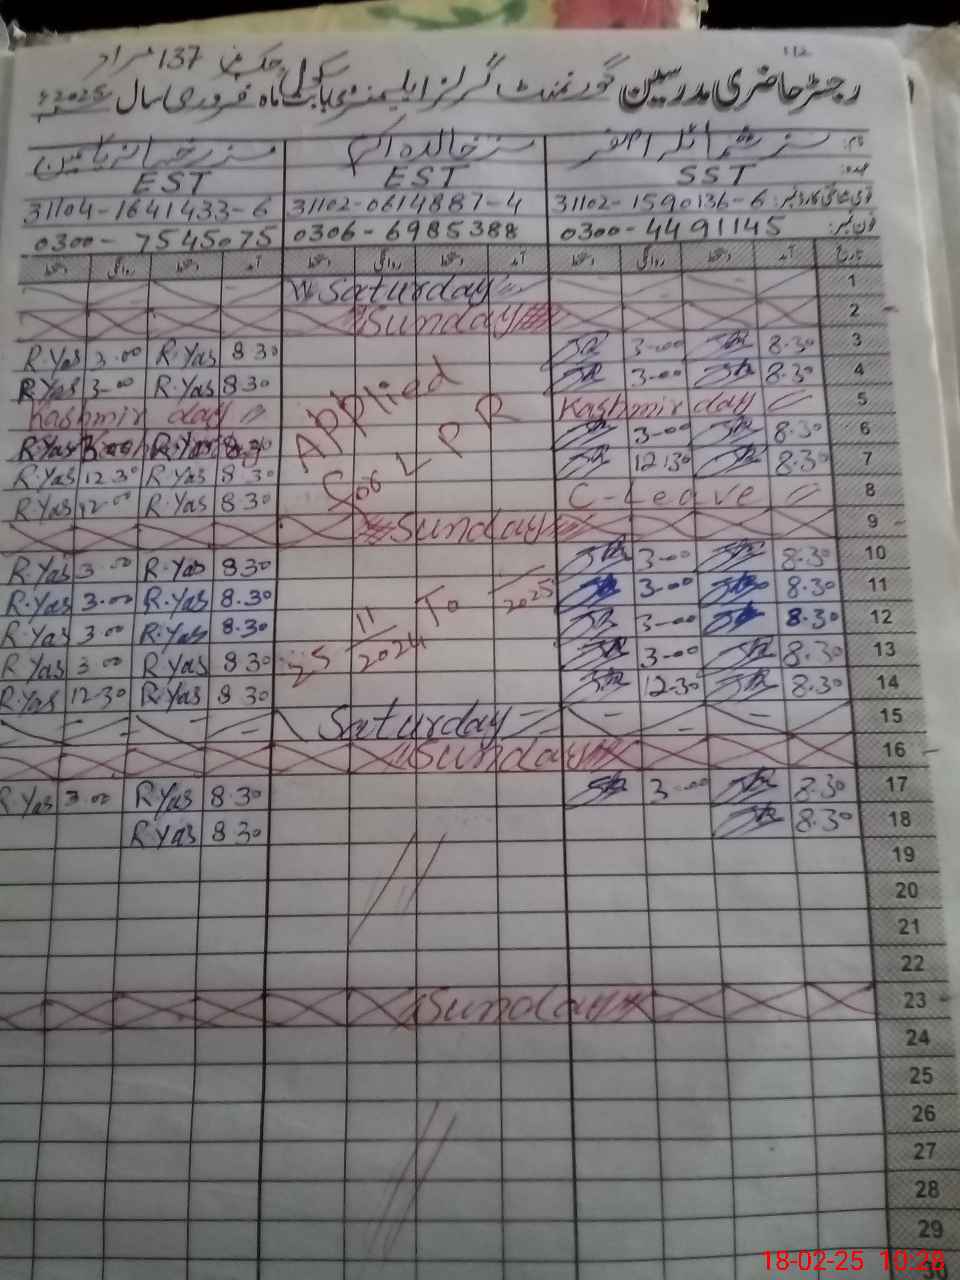 112
چک نمبر 137 مراد
رجسٹر حاضری مدرسین گورنمنٹ گرلز ایلیمنٹری سکول بابت ماہ فروری سال 2025ء
نام: مسز خالدہ
عہدہ: SST EST EST
قومی شناختی کارڈ نمبر: 31102-1590136-6 31102-0614887-4 31104-1641433-6
فون نمبر: 0300-4491145 0306-6985388 0300-7545075
تاریخ آمد دستخط روانگی دستخط آمد دستخط روانگی دستخط آمد دستخط روانگی دستخط
1 Saturday
2 Sunday
3 8.30 3-00 8.30 R.Yas 3.00 R.Yas
4 8.30 3-00 8.30 R.Yas 3-00 R.Yas
Applied
5 Kashmir day Kashmir day
6 8.30 3-00 8.30 R.Yas 3.00 R.Yas
7 8.30 12.30 8.30 R.Yas 12.30 R.Yas
LPR
8 C-Leave 8.30 R.Yas 12.00 R.Yas
9 Sunday
10 8.30 3-00 8.30 R.Yas 3.00 R.Yas
11 8.30 3-00 8.30 R.Yas 3.00 R.Yas
12 8.30 3-00 8.30 R.Yas 3.00 R.Yas
25 11/2024 To 2025
13 8.30 3-00 8.30 R.Yas 3.00 R.Yas
14 8.30 12.30 8.30 R.Yas 12.30 R.Yas
15 Saturday
16 Sunday
17 8.30 3-00 8.30 R.Yas 3.00 R.Yas
18 8.30 8.30 R.Yas
19
20
21
22
23 Sunday
24
25
26
27
28
29
18-02-25 10:28